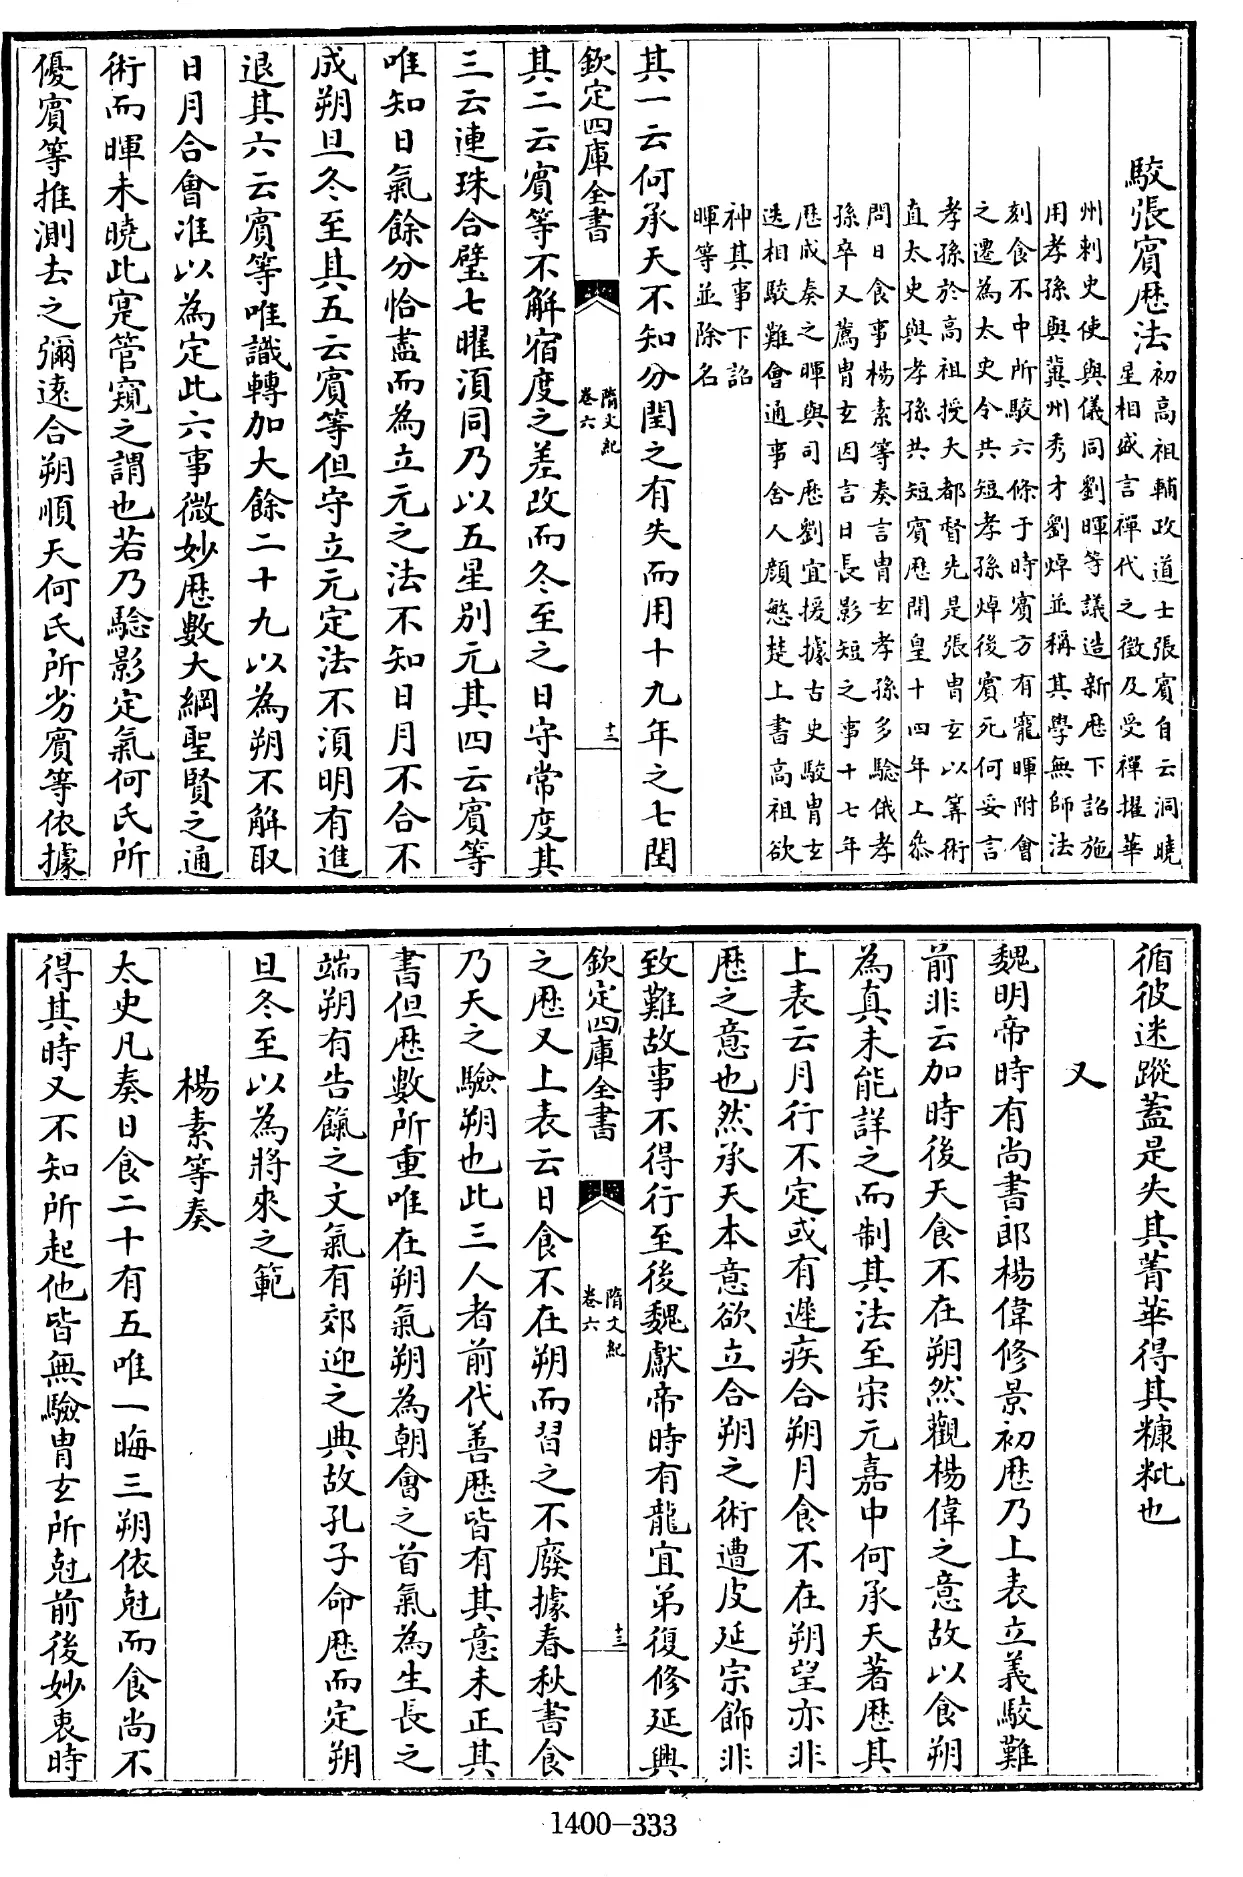 駮張賓厯法初高祖輔政道士張賓自云洞曉
星相盛言禪代之徵及受禪擢華
州刺史使與儀同劉暉等議造新厯下詔施
用孝孫與冀州秀才劉焯並稱其學無師法
刻食不中所駮六條于時賓方有寵暉附會
之遷為太史令共短孝孫焯後賓死何妥言
孝孫於高祖授大都督先是張胄玄以筭術
直太史與孝孫共短賓厯開皇十四年上叅
問日食事楊素等奏言胄玄孝孫多驗俄孝
孫卒又薦胄玄因言日長影短之事十七年
厯成奏之暉與司厯劉宜援據古史駮胄玄
迭相駮難會通事舍人顔慜楚上書高祖欲
神其事下詔
暉等並除名
其一云何承天不知分閏之有失而用十九年之七閏
欽定四庫全書
隋文紀
卷六
十二
其二云賓等不解宿度之差改而冬至之日守常度其
三云連珠合璧七曜湏同乃以五星别元其四云賓等
唯知日氣餘分恰盡而為立元之法不知日月不合不
成朔旦冬至其五云賓等但守立元定法不湏明有進
退其六云賓等唯識轉加大餘二十九以為朔不解取
日月合會准以為定此六事微妙厯數大綱聖賢之通
術而暉未曉此寔管窺之謂也若乃驗影定氣何氏所
優賓等推測去之彌逺合朔順天何氏所劣賓等依據
循彼迷蹤蓋是失其菁華得其糠粃也
又
魏明帝時有尚書郎楊偉修景初厯乃上表立義駮難
前非云加時後天食不在朔然觀楊偉之意故以食朔
為真未能詳之而制其法至宋元嘉中何承天著厯其
上表云月行不定或有遲疾合朔月食不在朔望亦非
厯之意也然承天本意欲立合朔之術遭皮延宗飾非
致難故事不得行至後魏獻帝時有龍宜弟復修延興
欽定四庫全書
隋文紀
卷六
十三
之厯又上表云日食不在朔而習之不廢據春秋書食
乃天之驗朔也此三人者前代善厯皆有其意未正其
書但厯數所重唯在朔氣朔為朝會之首氣為生長之
端朔有告餼之文氣有郊迎之典故孔子命厯而定朔
旦冬至以為將來之範
楊素等奏
太史凡奏日食二十有五唯一晦三朔依尅而食尚不
得其時又不知所起他皆無驗胄玄所尅前後妙衷時
1400-333